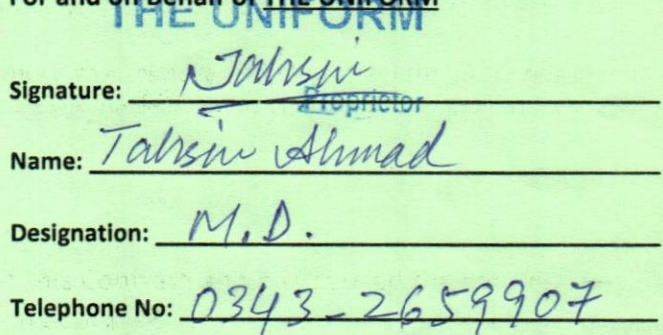 For and on Behalf of THE UNIFORM
THE UNIFORM
Signature: Tahsin
Proprietor
Name: Tahsin Ahmad
Designation: M.D.
Telephone No: 0343-2659907